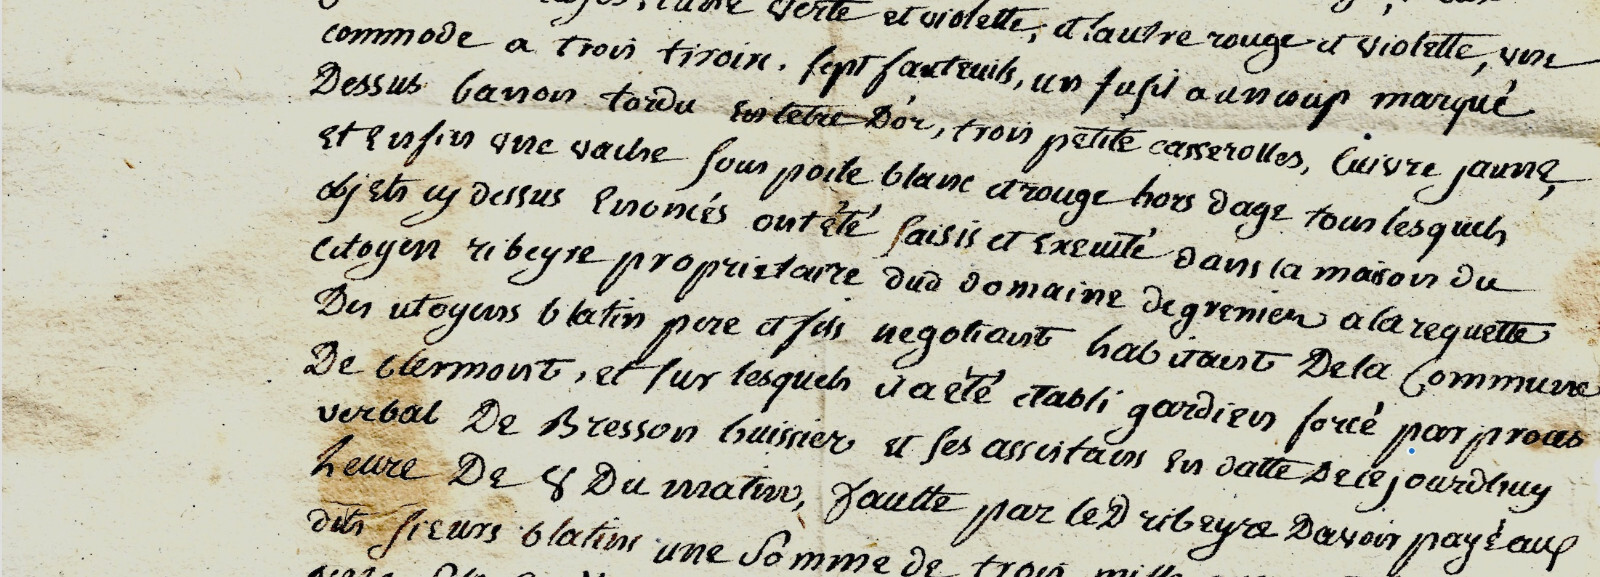 verte et violette, et lautre rouge et violette, une
commode a trois tiroirs. sept fauteuils, un fusil a un coup marqué
Dessus Canon tordu En lettre D'or, trois petite casserolles, Cuivre jaune,
Et Enfin une vache sous poile blanc et rouge hors dage tous lesquels
objets cy dessus Enoncés ont été saisis et Exeuté dans la maison du
Citoyen ribeyre proprietaire dud domaine de grenier a la requette
Des citoyens blatin pere et fils negotiant habitant De la Commune
De Clermont, et sur lesquels il a été etabli gardien forcé par proces
verbal De Bresson huissier et ses assistans En datte De ce jourdhuy
heure De 8 Du matin, faulte par le D ribeyre Davoir payé aux
dits sieurs blatins une Somme de trois mille